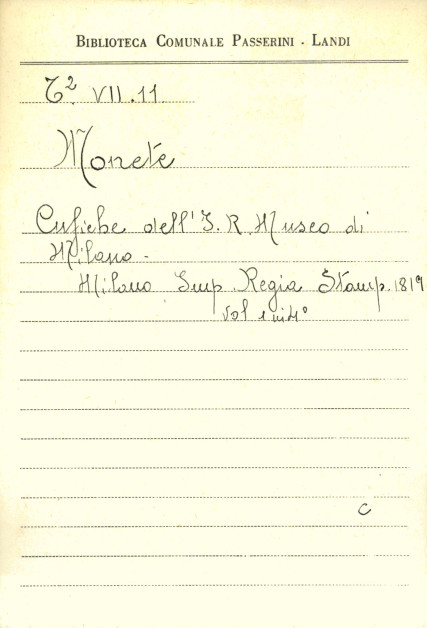 BIBLIOTECA COMUNALE PASSERINI - LANDI
T² VII.11
Monete
Cufiche dell'I.R. Museo di
Milano -
Milano Imp. Regia Stamp. 1819
Vol 1 in 4°
C